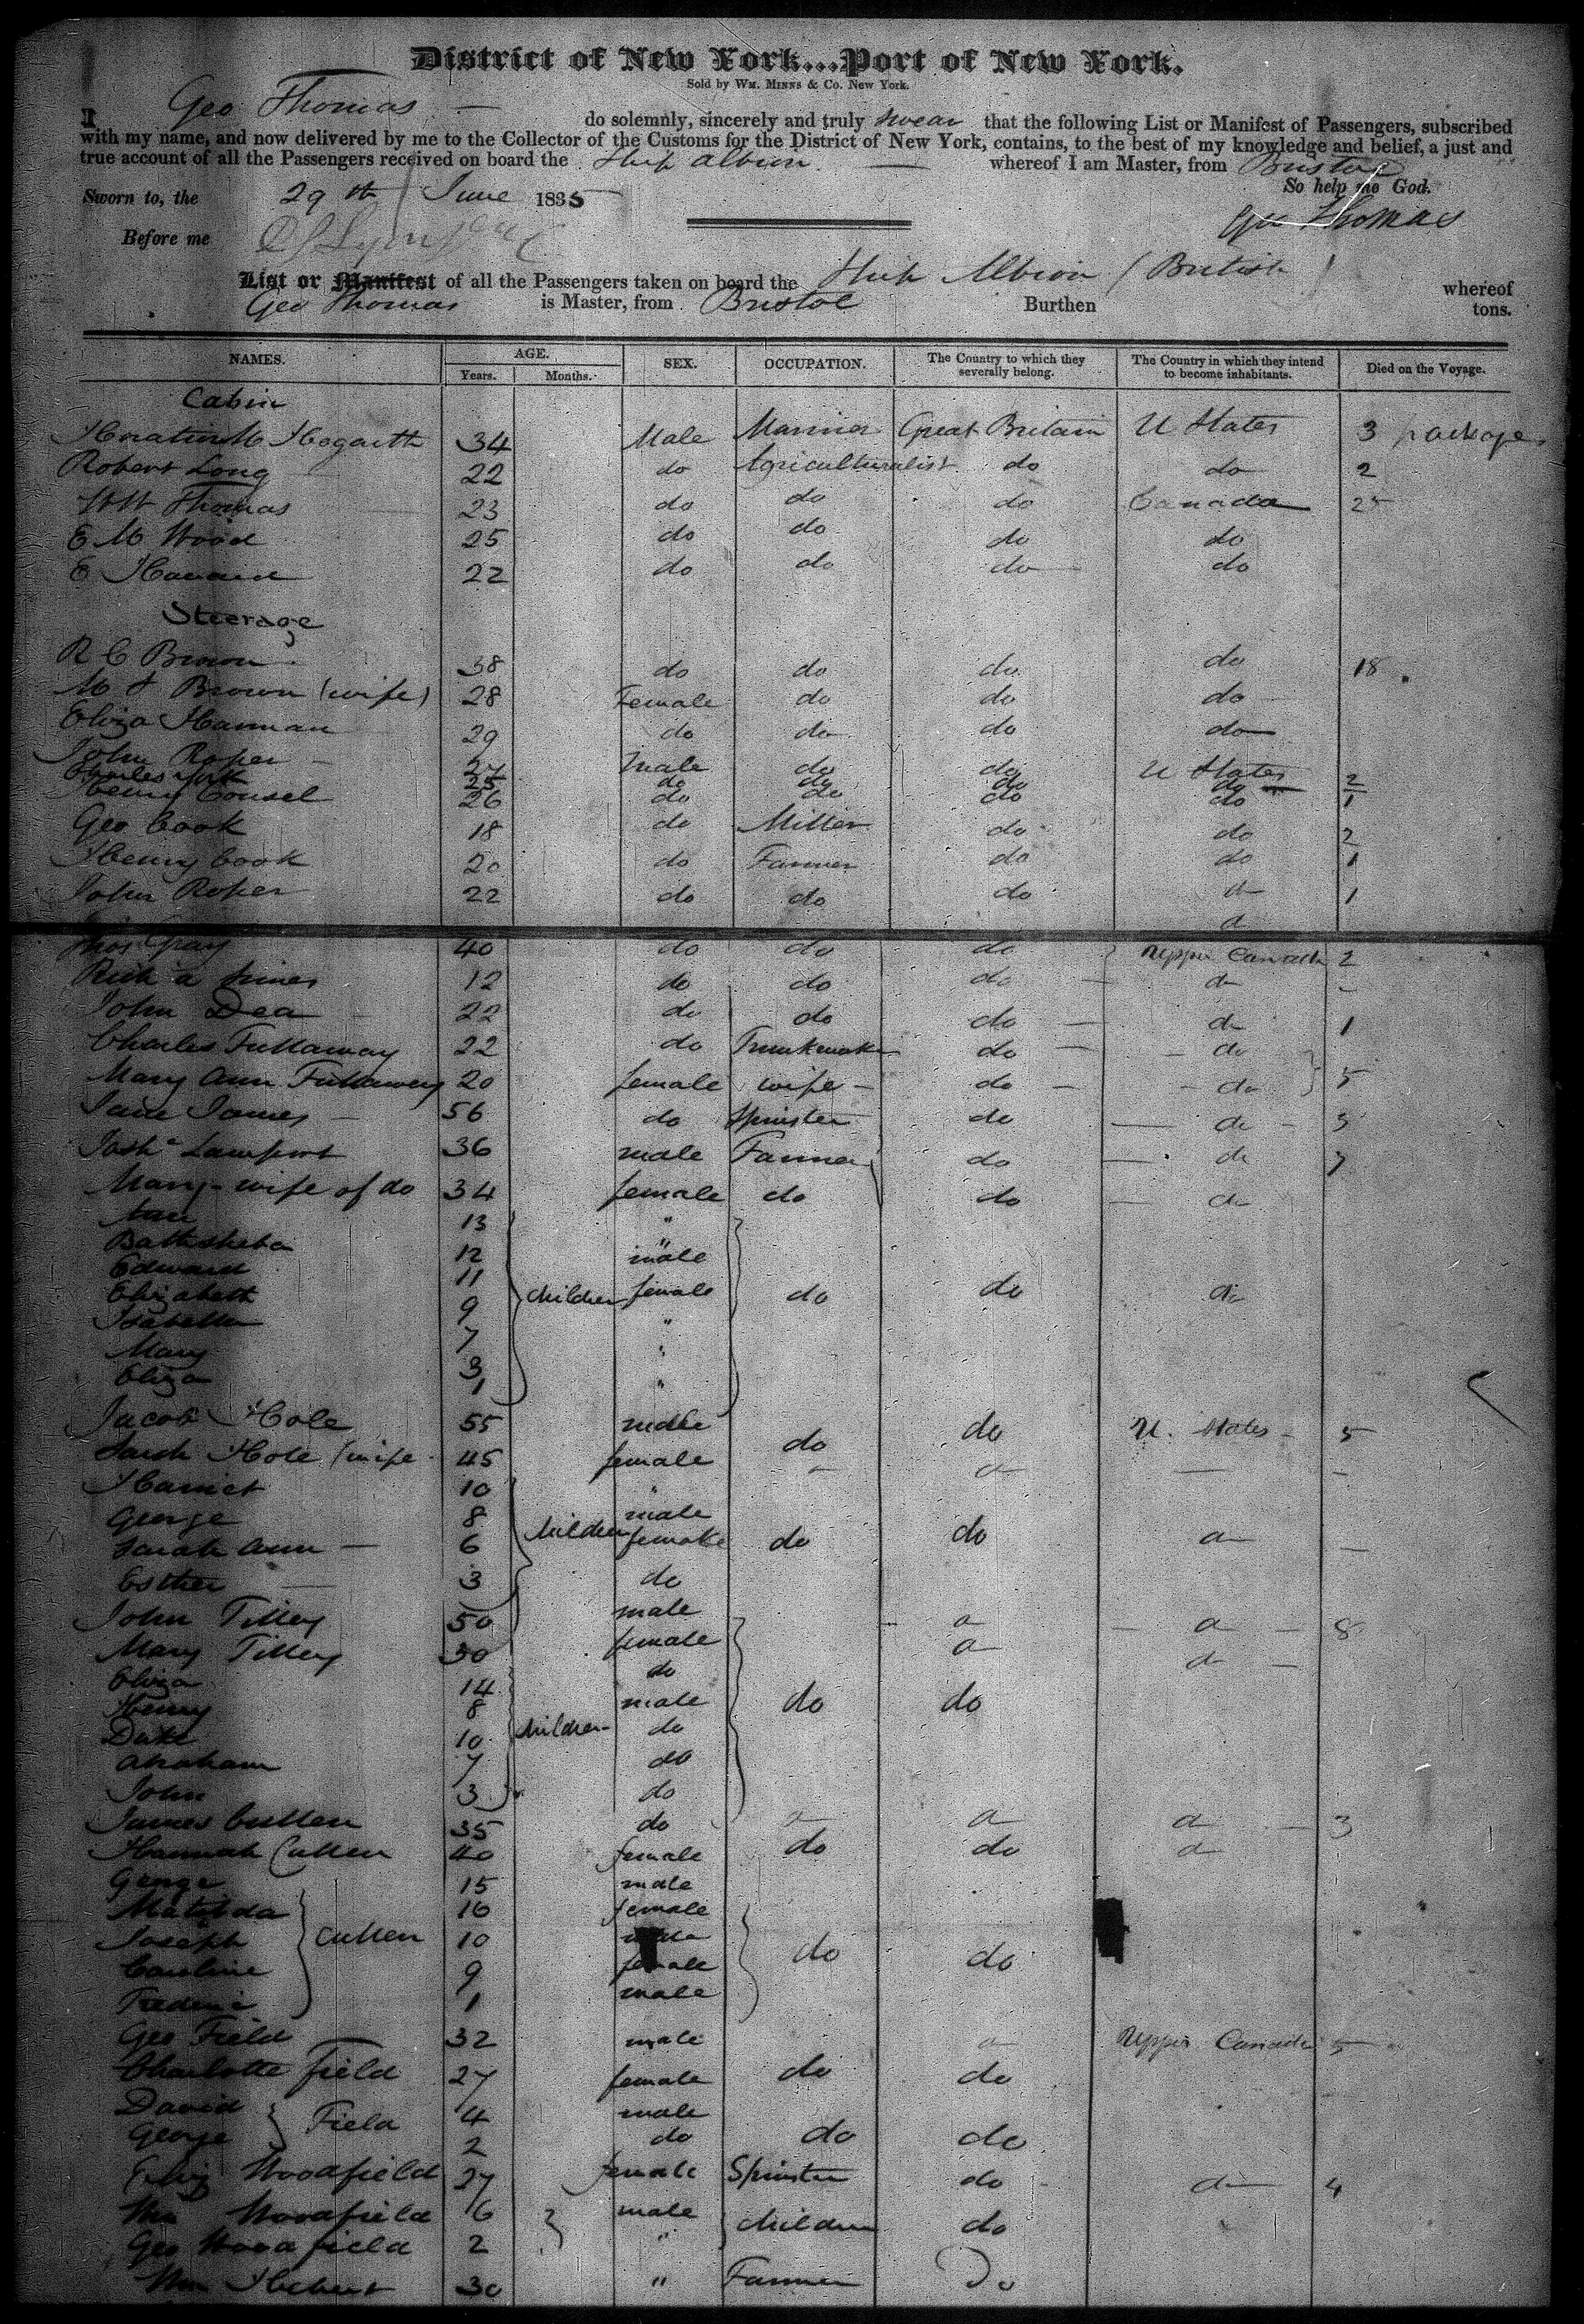 District of New York...Port of New York.
Sold by WM. MINNS & Co. New York.
I Geo Thomas do solemnly, sincerely and truly swear that the following List or Manifest of Passengers, subscribed
with my name, and now delivered by me to the Collector of the Customs for the District of New York, contains, to the best of my knowledge and belief, a just and
true account of all the Passengers received on board the Ship Albion whereof I am Master, from Bristol
So help me God.
Sworn to, the 29th June 1835
Geo Thomas
Before me
List or Manifest of all the Passengers taken on board the Ship Albion (British) whereof
Geo Thomas is Master, from Bristol Burthen tons.
NAMES. AGE. Years. Months. SEX. OCCUPATION. The Country to which they severally belong. The Country in which they intend to become inhabitants. Died on the Voyage.
Cabin
Hogarth 34 Male Mariner Great Britain U States 3 packages
Robert Long 22 do Agriculturalist do do 2
Thomas 23 do do do Canada 25
E M Wood 25 do do do do
E 22 do do do do
Steerage
R C Brown 38 do do do do 18
Brown (wife) 28 Female do do do
Eliza Hannan 29 do do do do
John Roper 27 male do do U States
Charles York 25 do do do do 2
Henry Counsel 26 do do do do 1
Geo Cook 18 do Miller do do 2
Henry Cook 20 do Farmer do do 1
John Roper 22 do do do do 1
do
Thos Gray 40 do do do Upper Canada 2
12 do do do do -
John Dea 22 do do do do 1
Charles Fullaway 22 do Trunkmaker do do
Mary Ann Fullaway 20 female wife do do 5
Jane James 56 do Spinster do do 3
Josh Lamport 36 male Farmer do do 7
Mary - wife of do 34 female do do do
Ann 13 "
Bathsheba 12 "
Edward 11 male
Elizabeth 9 children female do do do
Isabella 7 "
Mary 3 "
Eliza 1 "
Jacob Hole 55 male do do U. States 5
Sarah Hole (wife 45 female
Harriet 10 "
George 8 male
Sarah Ann 6 children female do do do
Esther 3 do
John Tilley 50 male do do 8
Mary Tilley 30 female do do
Eliza 14 do
Henry 8 male do do
10 children do
Abraham 7 do
John 3 do
James Cullen 35 do do do do 3
Hannah Cullen 40 female do do do
George 15 male
Matilda 16 female
Joseph Cullen 10 male do do
Caroline 9 female
Frederic 1 male
Geo Field 32 male do Upper Canada 5
Charlotte Field 27 female do do
David 4 male
George Field 2 do do do
Eliz Woodfield 27 female Spinster do do 4
Wm Woodfield 6 male children do
Geo Woodfield 2 "
Wm Hebert 30 " Farmer Do